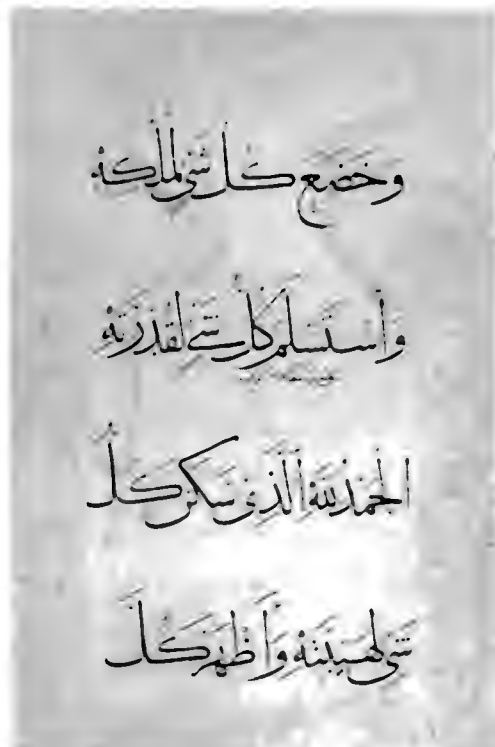 وَخَضَعَ كُلُّ شَيْءٍ لِمُلْكِهِ
وَاسْتَسْلَمَ كُلُّ شَيْءٍ لِقُدْرَتِهِ
الْحَمْدُ لِلَّهِ الَّذِي سَكَنَ كُلُّ
شَيْءٍ لِهَيْبَتِهِ وَأَظْهَرَ كُلَّ